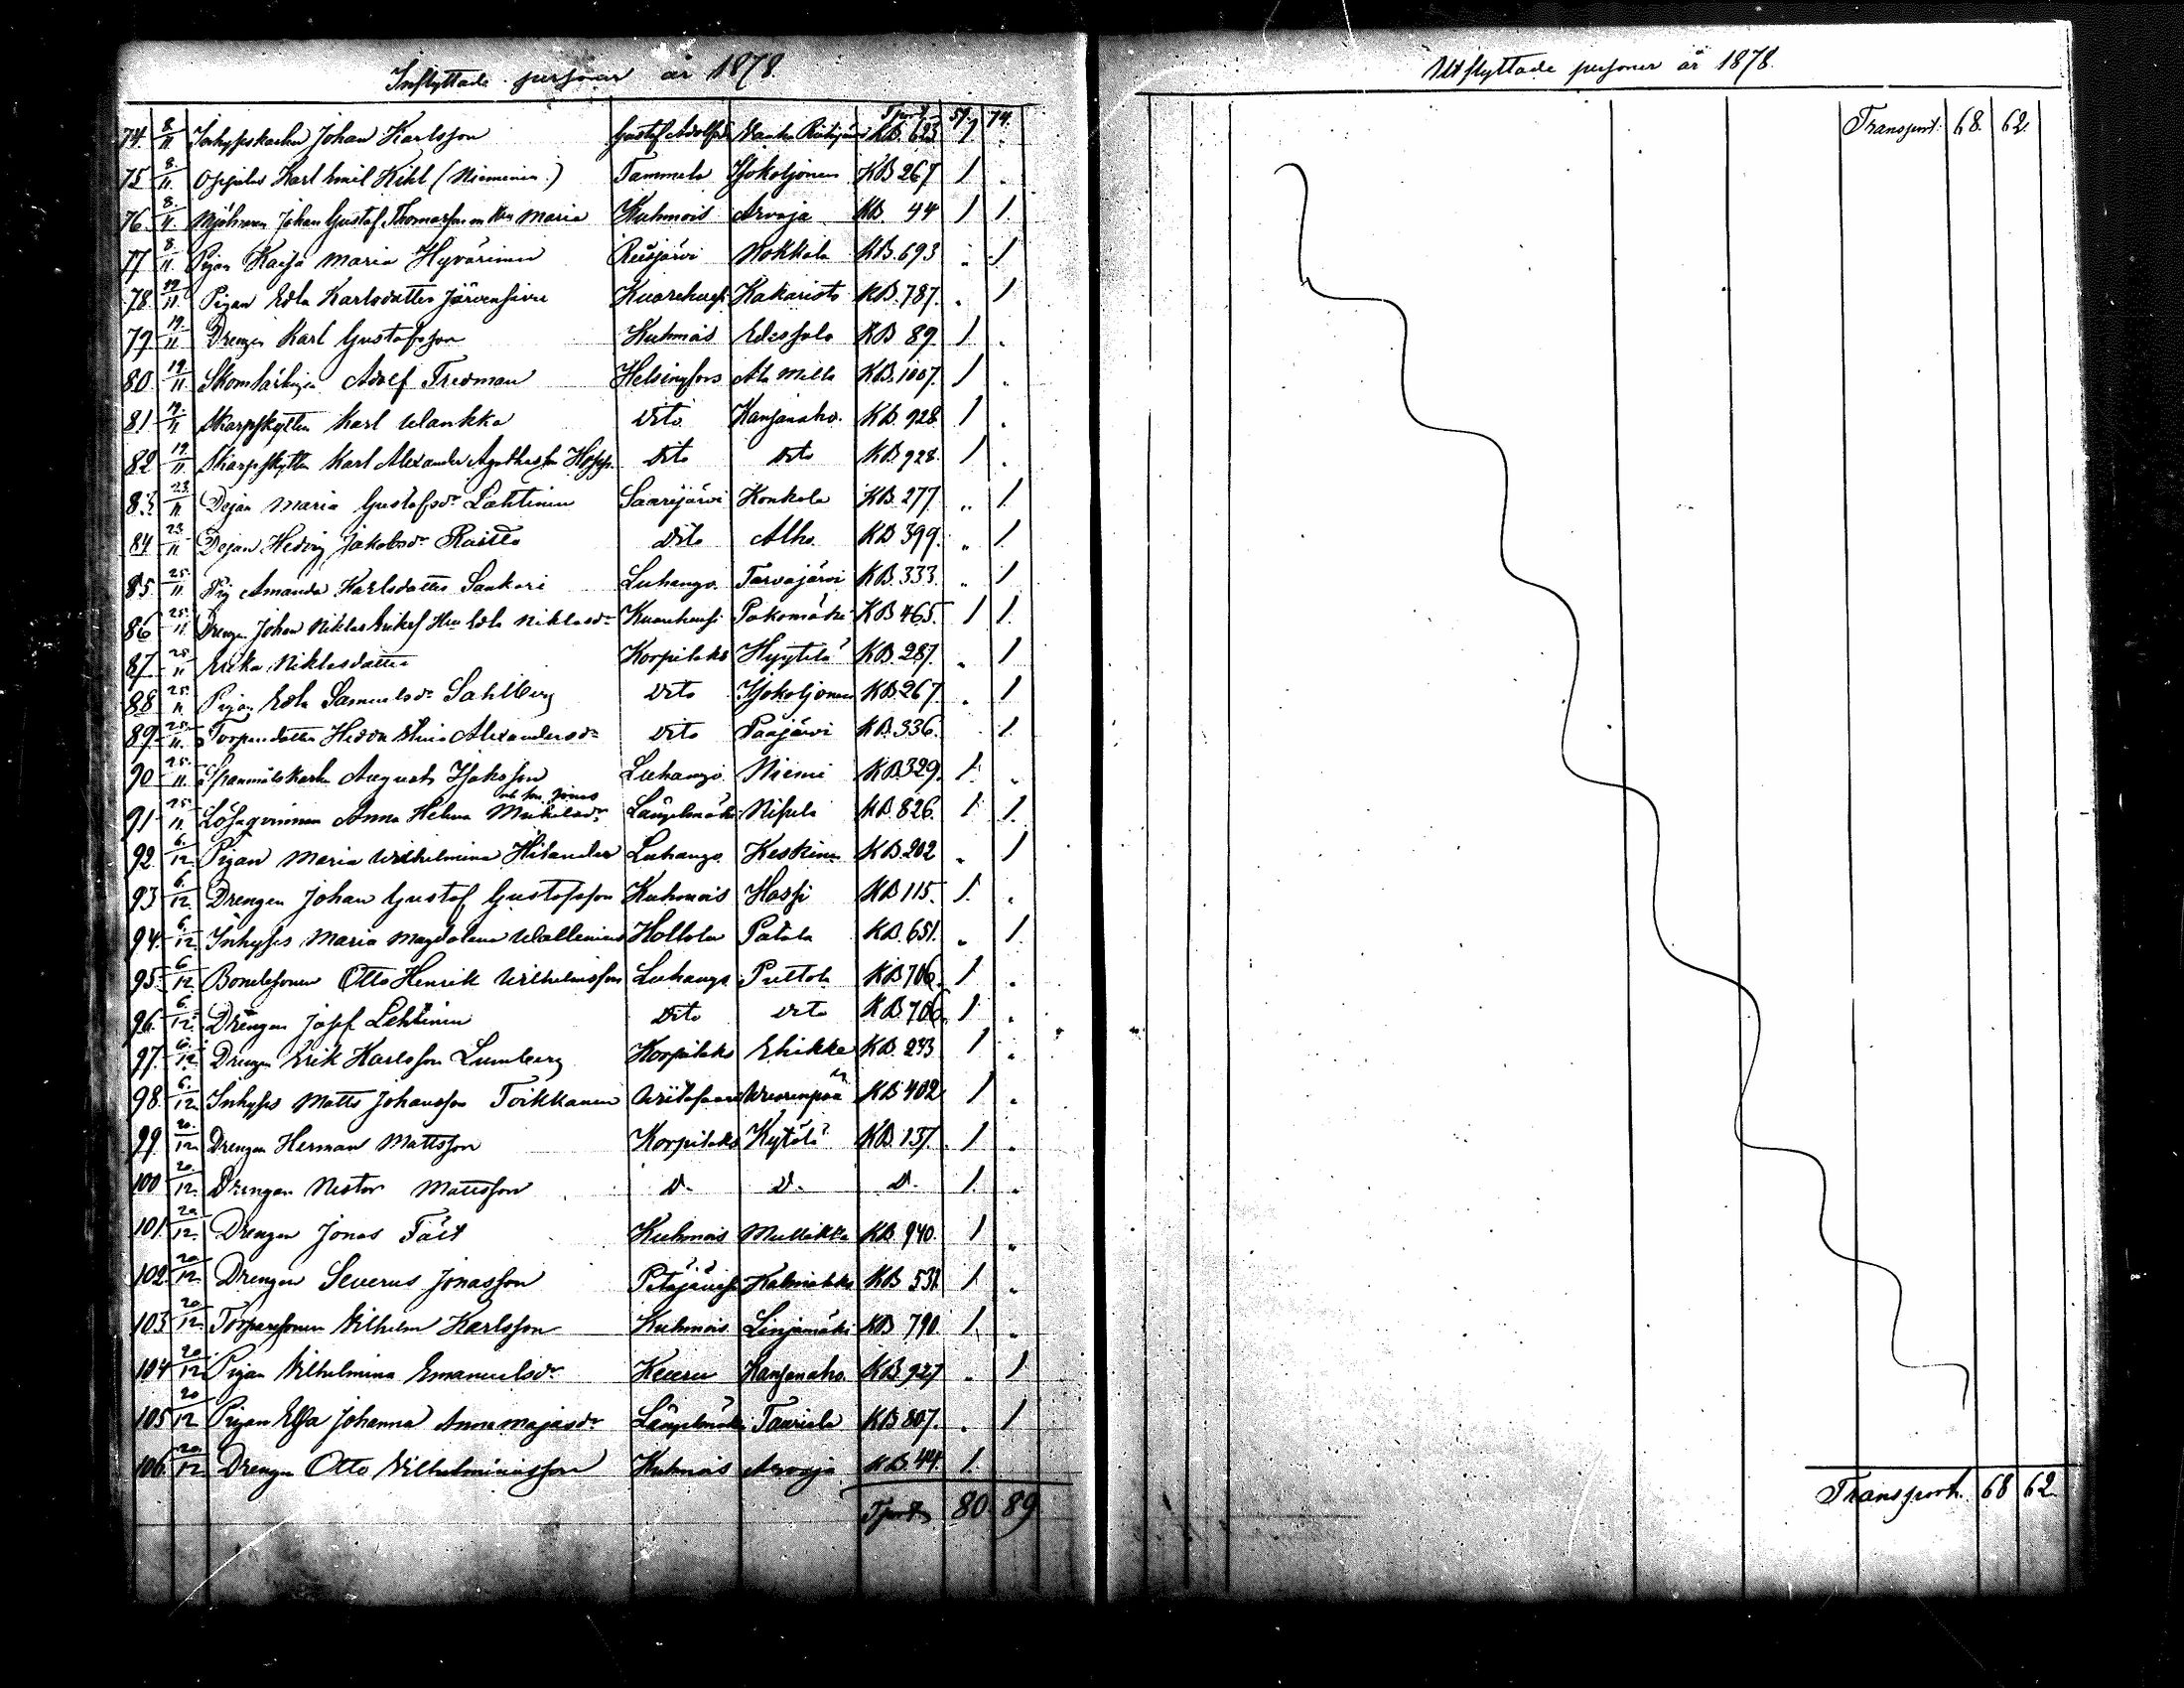 Inflyttade personer år 1878.
Tsport 57. 74.
74. 8/11 Inhyseskarlen Johan Karlsson Gustaf Adolfs KB. 623 1
75 8/11. Karl Emil Kihl (Nieminen) Tammela KB 267 1 "
76. 8/11. Mjölnaren Johan Gustaf Thomasson Maria Kuhmois Arvaja KB. 44 1 1.
77 8/11. Pigan Kaisa Maria Hyvärinen Reisjärvi Nokkala KB. 693 " 1
78. 19/11. Pigan Edla Karlsdotter Järvensivu Kuorehvesi Kakaristo KB. 787. " 1
79 19/11. Drengen Karl Gustafsson Kuhmois Edessalo KB 89 1 "
80 19/11. Adolf Fredman Helsingfors Ala Mella KB. 1007. 1 "
81 19/11 Skarpskytten Karl Wankka Dito Kansanaho. KB. 928 1 "
82 19/11. Skarpskytten Karl Alexander Dito Dito KB. 928. 1 "
83 23/11 Dejan Maria Gustafsdr Lahtinen Saarijärvi Konkola KB. 277. " 1.
84 23/11 Dejan Hedvig Jakobsdr Raitto Dito Alho. KB 399. " 1.
85 25/11. Pig Amanda Karlsdotter Sankari Luhango Tarvajärvi KB. 333. " 1
86 25/11. Drengen Johan Niklas Eriksf Hru Edla Niklasdr Kuorehvesi Pakomäki KB 465. 1 1.
87 25/11 Erika Niklasdotter Korpilaks Hyytilä KB. 287. " 1
88 25/11. Pigan Edla Samuelsdr Sahlberg Dito KB. 267 " 1
89 25/11. Torparedotter Hedda Alexandersdr Dito Paajärvi KB. 336. 1.
90 25/11. Spanmålskarlen August Isaksson Luhango Niemi KB 329. 1. "
91 25/11. Lösaqvinnan Anna Helena Mikelsdr och son Jonas Längelmäki KB 826. 1 1.
92 6/12. Pigan Maria Wilhelmina Hilander Luhango. Keskinen KB. 202 " 1
93 6/12. Drengen Johan Gustaf Gustafsson Kuhmois Hassi KB 115. 1. "
94. 6/12. Inhyses Maria Magdalena Wallenius Hollola Patala KB. 651. " 1.
95. 6/12. Bondesonen Otto Henrik Wilhelmsson Luhango Puttola KB 706. 1 "
96. 6/12. Drengen Josef Lehtinen Dito Dito KB. 706. 1 "
97. 6/12. Drengen Erik Karlsson Lumberg Korpilaks KB. 233 1 "
98. 6/12. Inhyses Matts Johansson Toikkanen Wiitasaari KB 402 1 "
99. 20/12. Drengen Herman Mattsson Korpilaks Kytölä KB. 137. 1 "
100 20/12. Drengen Nestor Mattsson D. D. D. 1. "
101. 20/12. Drengen Jonas Fält Kuhmois Mullikka KB. 940. 1 "
102 20/12. Drengen Severus Jonasson Petäjävesi KB 532. 1. "
103 20/12. Torparesonen Vilhelm Karlsson Kuhmois Linjamäki KB 790. 1. "
104 20/12. Pigan Vilhelmina Emanuelsdr Keuru Kansanaho. KB. 927 " 1
105 20/12 Pigan Elsa Johanna Annamajasdr Längelmäki Tauriala KB 807. " 1
106 20/12 Drengen Otto Vilhelminasson Kuhmois Arvaja KB. 44. 1.
Tsport 80. 89.
Utflyttade personer år 1878.
Transport. 68. 62.
Transport. 68 62.